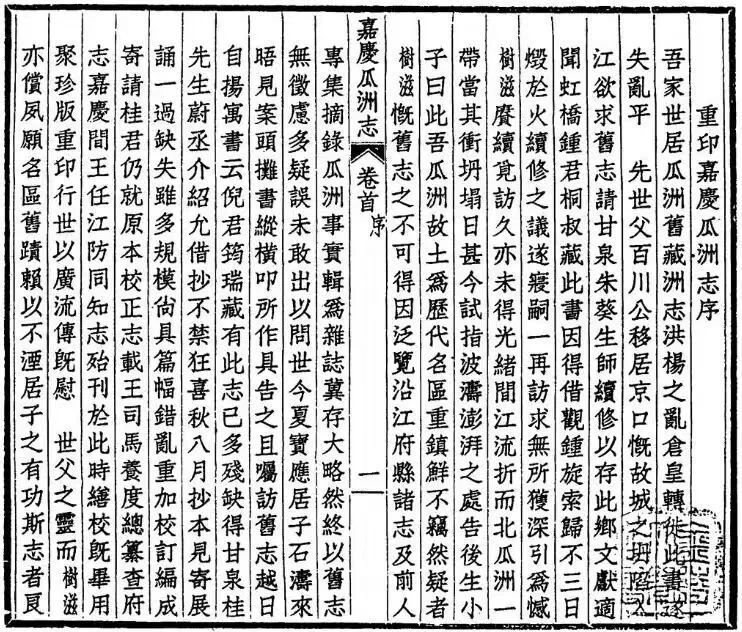 重印嘉慶瓜洲志序
吾家世居瓜洲舊藏洲志洪楊之亂倉皇轉徙此書遂
失亂平　先世父百川公移居京口慨故城之坍陷入
江欲求舊志請甘泉朱葵生師續修以存此鄉文獻適
聞虹橋鍾君桐叔藏此書因得借觀鍾旋索歸不三日
燬於火續修之議遂寢嗣一再訪求無所獲深引爲憾
樹滋賡續覓訪久亦未得光緒間江流折而北瓜洲一
帶當其衝坍塌日甚今試指波濤澎湃之處告後生小
子曰此吾瓜洲故土爲歷代名區重鎮鮮不竊然疑者
樹滋慨舊志之不可得因泛覽沿江府縣諸志及前人
嘉慶瓜洲志　卷首　序　一
專集摘錄瓜洲事實輯爲雜誌冀存大略然終以舊志
無徵慮多疑誤未敢出以問世今夏寶應居子石濤來
晤見案頭攤書縱橫叩所作具告之且囑訪舊志越日
自揚寓書云倪君筠瑞藏有此志已多殘缺得甘泉桂
先生蔚丞介紹允借抄不禁狂喜秋八月抄本見寄展
誦一過缺失雖多規模尙具篇幅錯亂重加校訂編成
寄請桂君仍就原本校正志載王司馬養度總纂查府
志嘉慶間王任江防同知志殆刊於此時繕校旣畢用
聚珍版重印行世以廣流傳旣慰　世父之靈而樹滋
亦償夙願名區舊蹟賴以不湮居子之有功斯志者良